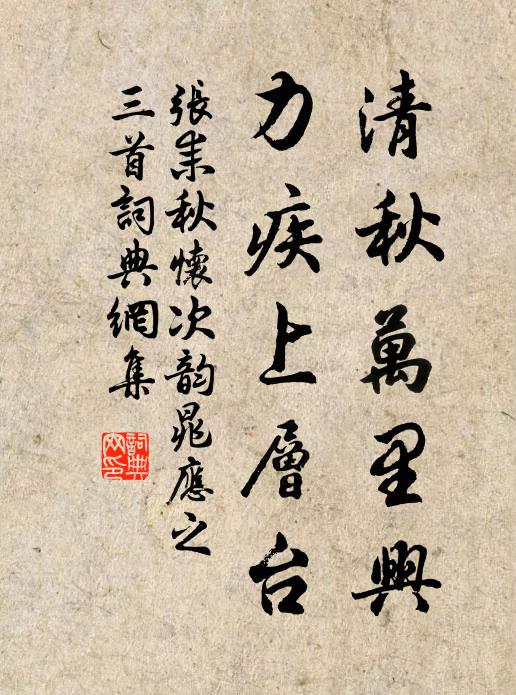 清秋萬里興
力疾上層台
張耒秋懷次韵晁應之
三首詞典網集
詞典网印